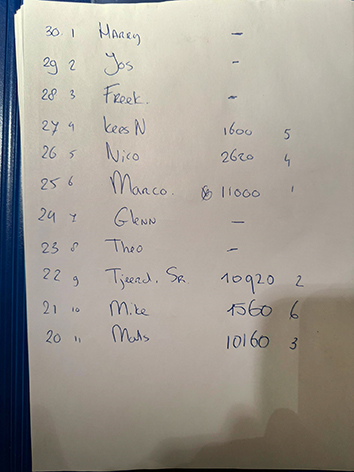 30 1 Harry -
29 2 Jos -
28 3 Freek. -
27 4 Kees N 1600 5
26 5 Nico 2620 4
25 6 Marco. 11000 1
24 7 Glenn -
23 8 Theo -
22 9 Tjeerd. Sr 10920 2
21 10 Mike 1560 6
20 11 Mats 10160 3